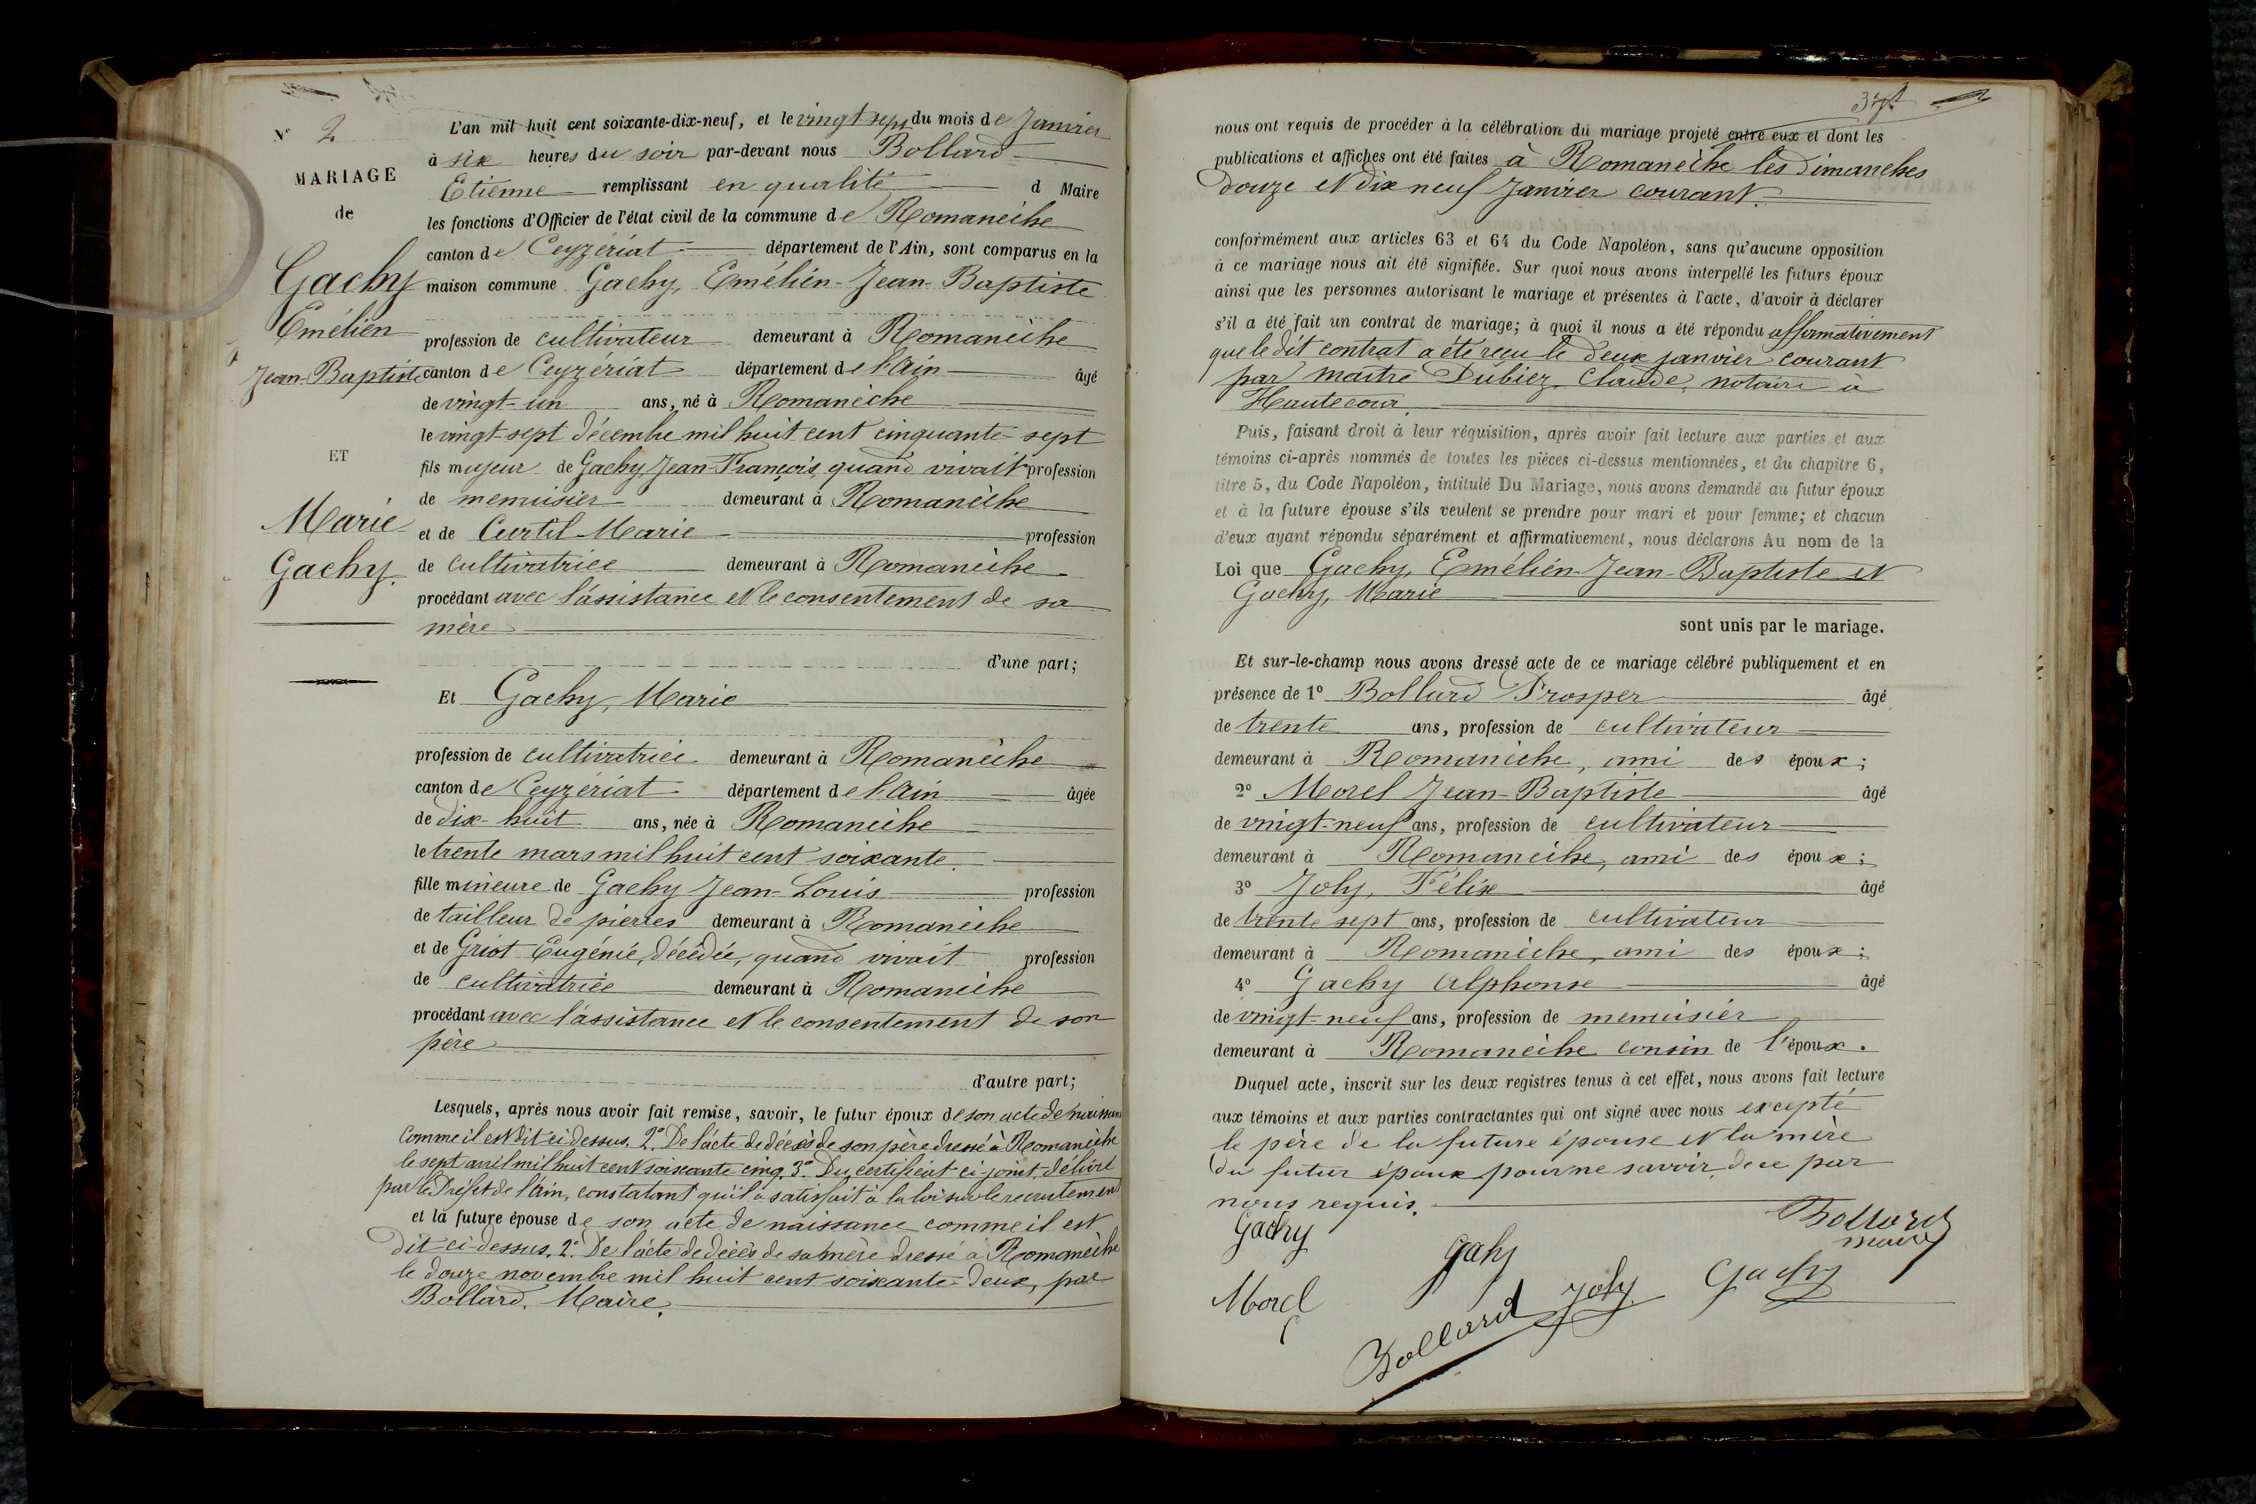 N° 2
MARIAGE
de
Gachy
Emélien
Jean-Baptiste
ET
Marie
Gachy.
L'an mil huit cent soixante-dix-neuf, et le vingt sept du mois de Janvier
à six heures du soir par-devant nous Bollard
Etienne remplissant en qualité d Maire
les fonctions d'Officier de l'état civil de la commune de Romanèche
canton de Ceyzériat département de l'Ain, sont comparus en la
maison commune Gachy, Emélien-Jean-Baptiste
profession de cultivateur demeurant à Romanèche
canton de Ceyzériat département de l'Ain âgé
de vingt-un ans, né à Romanèche
le vingt-sept décembre mil huit cent cinquante-sept
fils majeur de Gachy Jean-François, quand vivait profession
de menuisier demeurant à Romanèche
et de Curtil Marie profession
de cultivatrice demeurant à Romanèche
procédant avec l'assistance et le consentement de sa
mère
d'une part;
Et Gachy, Marie
profession de cultivatrice demeurant à Romanèche
canton de Ceyzériat département de l'Ain âgée
de dix-huit ans, née à Romanèche
le trente mars mil huit cent soixante.
fille mineure de Gachy Jean-Louis profession
de tailleur de pierres demeurant à Romanèche
et de Griot Eugénie, décédée, quand vivait profession
de cultivatrice demeurant à Romanèche
procédant avec l'assistance et le consentement de son
père
d'autre part;
Lesquels, après nous avoir fait remise, savoir, le futur époux de son acte de naissance
comme il est dit ci dessus. 2° De l'acte de décès de son père dressé à Romanèche
le sept avril mil huit cent soixante-cinq. 3° Du certificat ci-joint délivré
par le Préfet de l'Ain, constatant qu'il a satisfait à la loi sur le recrutement
et la future épouse de son acte de naissance comme il est
dit ci-dessus. 2° De l'acte de décès de sa mère dressé à Romanèche
le douze novembre mil huit cent soixante-deux, par
Bollard, Maire.
nous ont requis de procéder à la célébration du mariage projeté entre eux et dont les
publications et affiches ont été faites à Romanèche les dimanches
douze et dix neuf Janvier courant.
conformément aux articles 63 et 64 du Code Napoléon, sans qu'aucune opposition
à ce mariage nous ait été signifiée. Sur quoi nous avons interpellé les futurs époux
ainsi que les personnes autorisant le mariage et présentes à l'acte, d'avoir à déclarer
s'il a été fait un contrat de mariage; à quoi il nous a été répondu affirmativement
que le dit contrat a été reçu le deux janvier courant
par maître Dubiez Claude, notaire à
Hautecour.
Puis, faisant droit à leur réquisition, après avoir fait lecture aux parties et aux
témoins ci-après nommés de toutes les pièces ci-dessus mentionnées, et du chapitre 6,
titre 5, du Code Napoléon, intitulé Du Mariage, nous avons demandé au futur époux
et à la future épouse s'ils veulent se prendre pour mari et pour femme; et chacun
d'eux ayant répondu séparément et affirmativement, nous déclarons Au nom de la
Loi que Gachy, Emélien-Jean-Baptiste et
Gachy, Marie
sont unis par le mariage.
Et sur-le-champ nous avons dressé acte de ce mariage célébré publiquement et en
présence de 1° Bollard Prosper âgé
de trente ans, profession de cultivateur
demeurant à Romanèche, ami des époux;
2° Morel Jean-Baptiste âgé
de vingt-neuf ans, profession de cultivateur
demeurant à Romanèche, ami des époux;
3° Joly, Félix âgé
de trente sept ans, profession de cultivateur
demeurant à Romanèche, ami des époux;
4° Gachy Alphonse âgé
de vingt-neuf ans, profession de menuisier
demeurant à Romanèche cousin de l'époux.
Duquel acte, inscrit sur les deux registres tenus à cet effet, nous avons fait lecture
aux témoins et aux parties contractantes qui ont signé avec nous excepté
le père de la future épouse et la mère
du futur époux pour ne savoir, de ce par
nous requis.
Gachy
Gahy
Bollard
maire
Morel
Bollard
Joly
Gachy